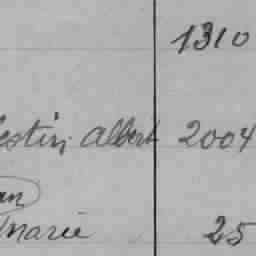 1310
estin Albert 2004
an
Marie 25